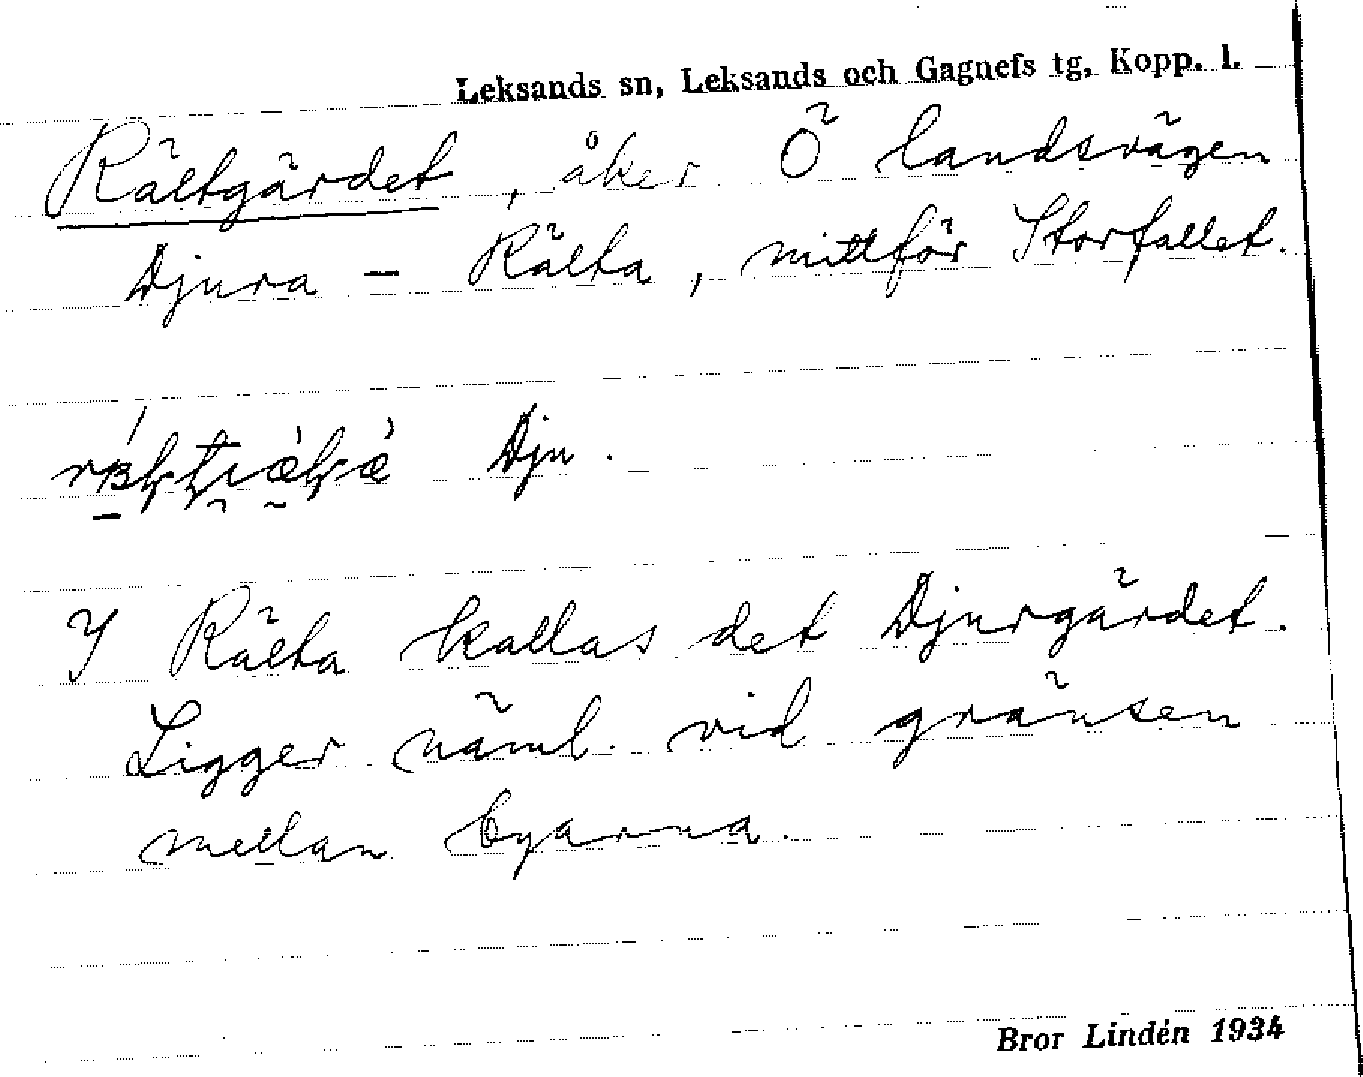 Leksands sn, Leksands och Gagnefs tg, Kopp. l.
Rältgärdet, åker Ö landsvägen
Djura – Rälta, mittför Storfallet.
Dju.
I Rälta kallas det Djurgärdet.
Ligger näml. vid gränsen
mellan byarna.
Bror Lindén 1934